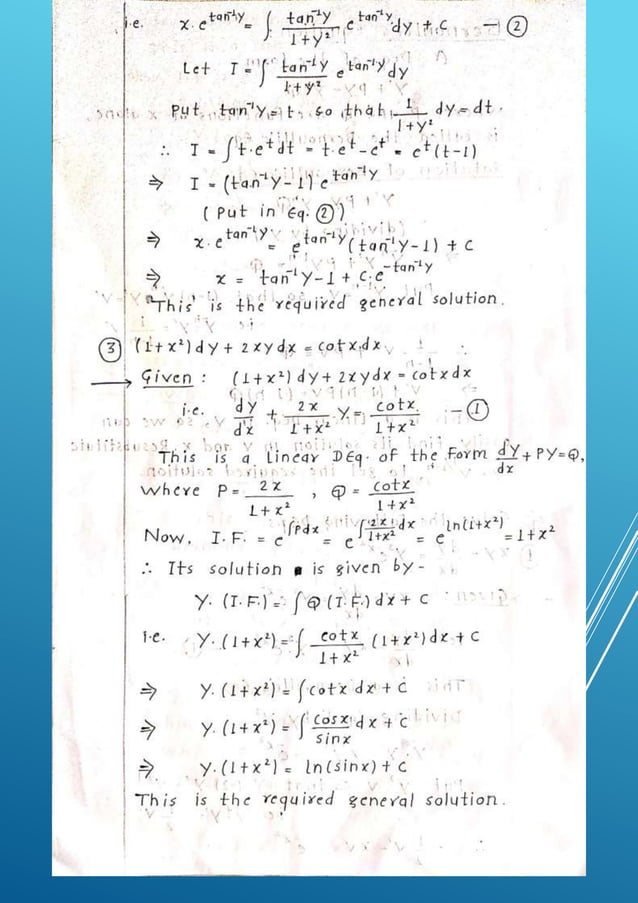 i.e. x.e^tan⁻¹y = ∫ tan⁻¹y/1+y² e^tan⁻¹y dy + c —②
Let I = ∫ tan⁻¹y/1+y² e^tan⁻¹y dy
Put tan⁻¹y = t, so that 1/1+y² dy = dt.
∴ I = ∫t.e^t dt = t.e^t - e^t = e^t(t-1)
⇒ I = (tan⁻¹y-1) e^tan⁻¹y
(Put in Eq. ②)
⇒ x.e^tan⁻¹y = e^tan⁻¹y (tan⁻¹y-1) + c
⇒ x = tan⁻¹y-1 + c.e^-tan⁻¹y
This is the required general solution.
③ (1+x²)dy + 2xydx = cotx.dx.
→ Given : (1+x²)dy + 2xydx = cotxdx
i.e. dy/dx + 2x/1+x² .y = cotx/1+x² —①
This is a Linear DEq. of the form dy/dx + Py=Q,
where P = 2x/1+x² , Q = cotx/1+x²
Now, I.F. = e^∫Pdx = e^∫2x/1+x² dx = e^ln(1+x²) = 1+x²
∴ Its solution is given by-
y.(I.F.) = ∫Q(I.F.)dx + c
i.e. y.(1+x²) = ∫ cotx/1+x² (1+x²)dx + c
⇒ y.(1+x²) = ∫cotx dx + c
⇒ y.(1+x²) = ∫ cosx/sinx dx + c
⇒ y.(1+x²) = ln(sinx) + c
This is the required general solution.